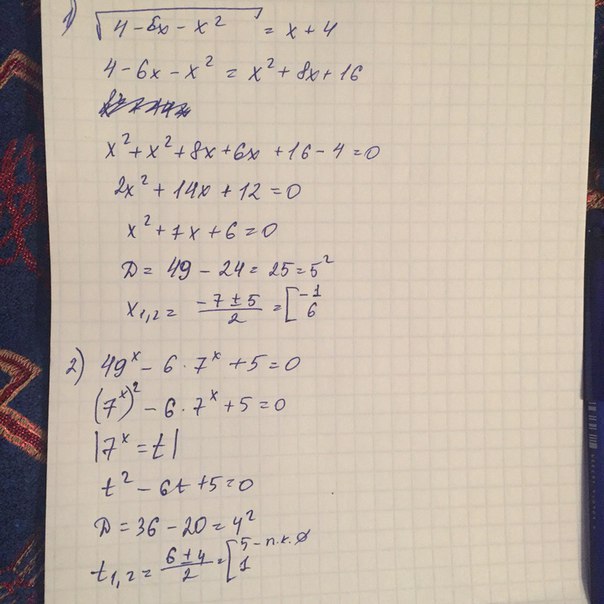 1) √(4 - 6x - x²) = x + 4
4 - 6x - x² = x² + 8x + 16
x² + x² + 8x + 6x + 16 - 4 = 0
2x² + 14x + 12 = 0
x² + 7x + 6 = 0
D = 49 - 24 = 25 = 5²
x₁,₂ = (-7 ± 5)/2 = [-1 6
2) 49ˣ - 6 · 7ˣ + 5 = 0
(7ˣ)² - 6 · 7ˣ + 5 = 0
|7ˣ = t|
t² - 6t + 5 = 0
D = 36 - 20 = 4²
t₁,₂ = (6 ± 4)/2 = [5 - п.к. ∅ 1